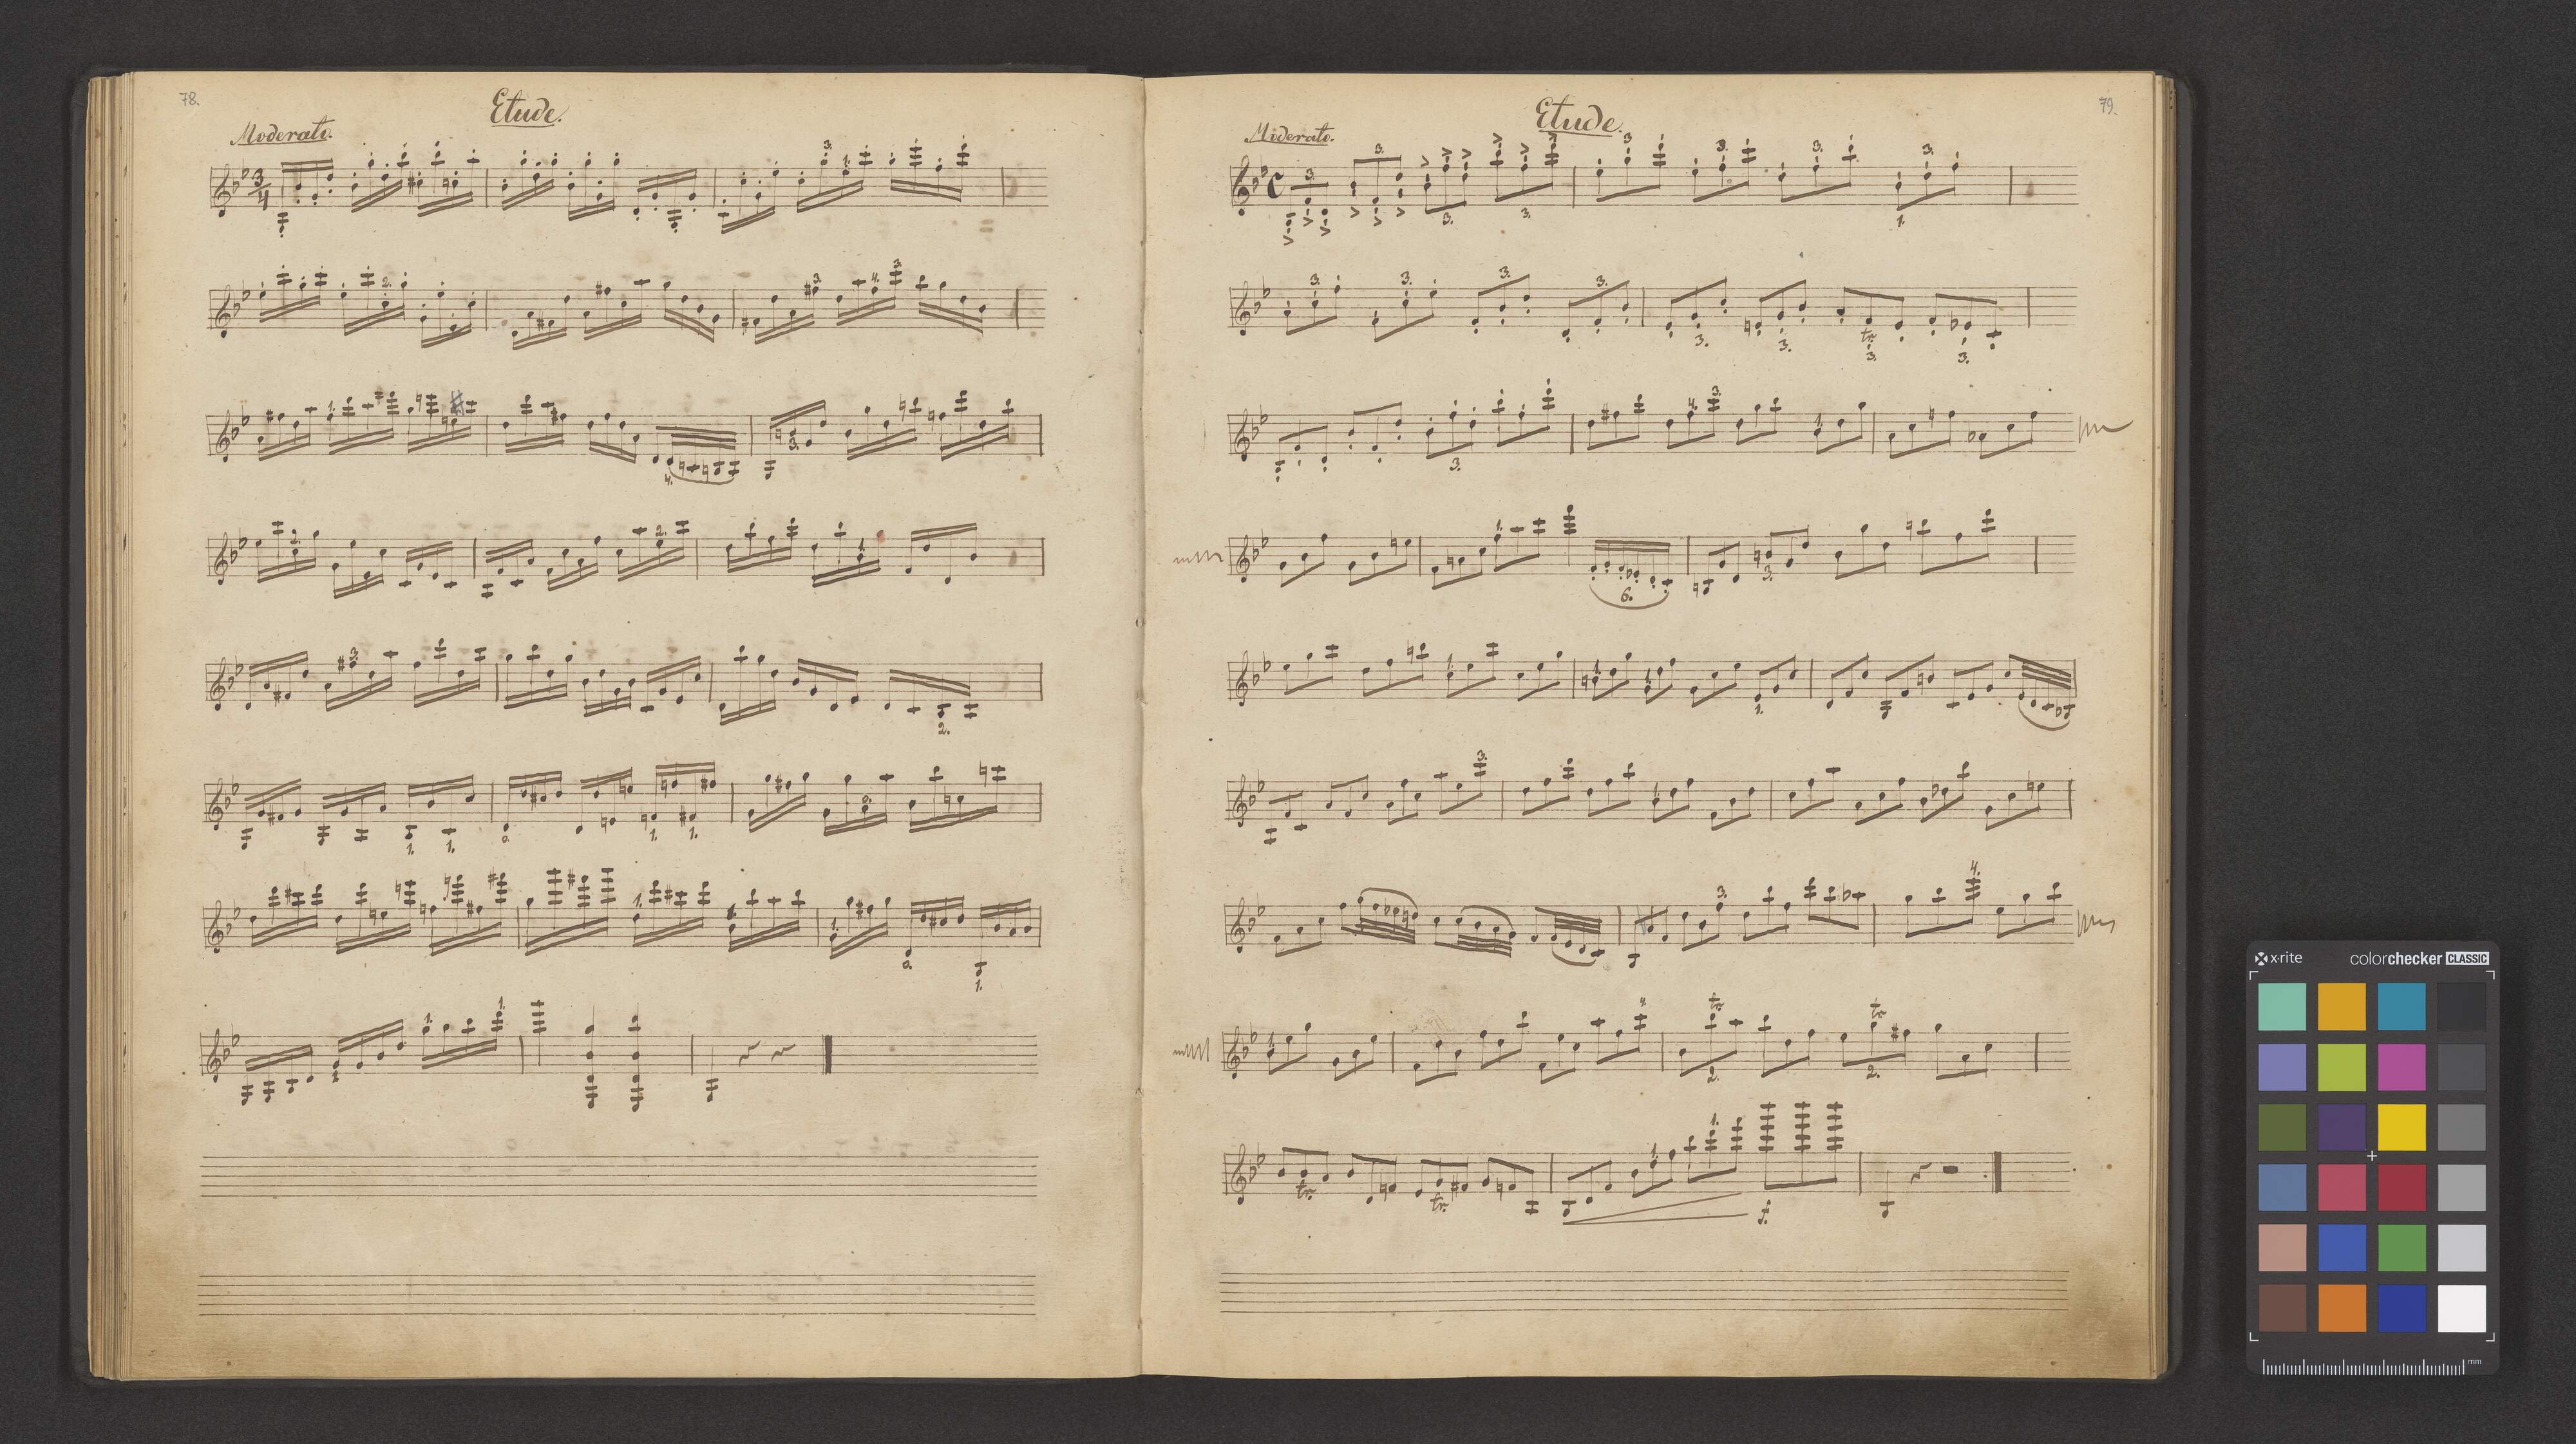 78.
Etude.
Moderato.
79.
Etude.
Moderato.
x·rite
colorchecker CLASSIC
mm